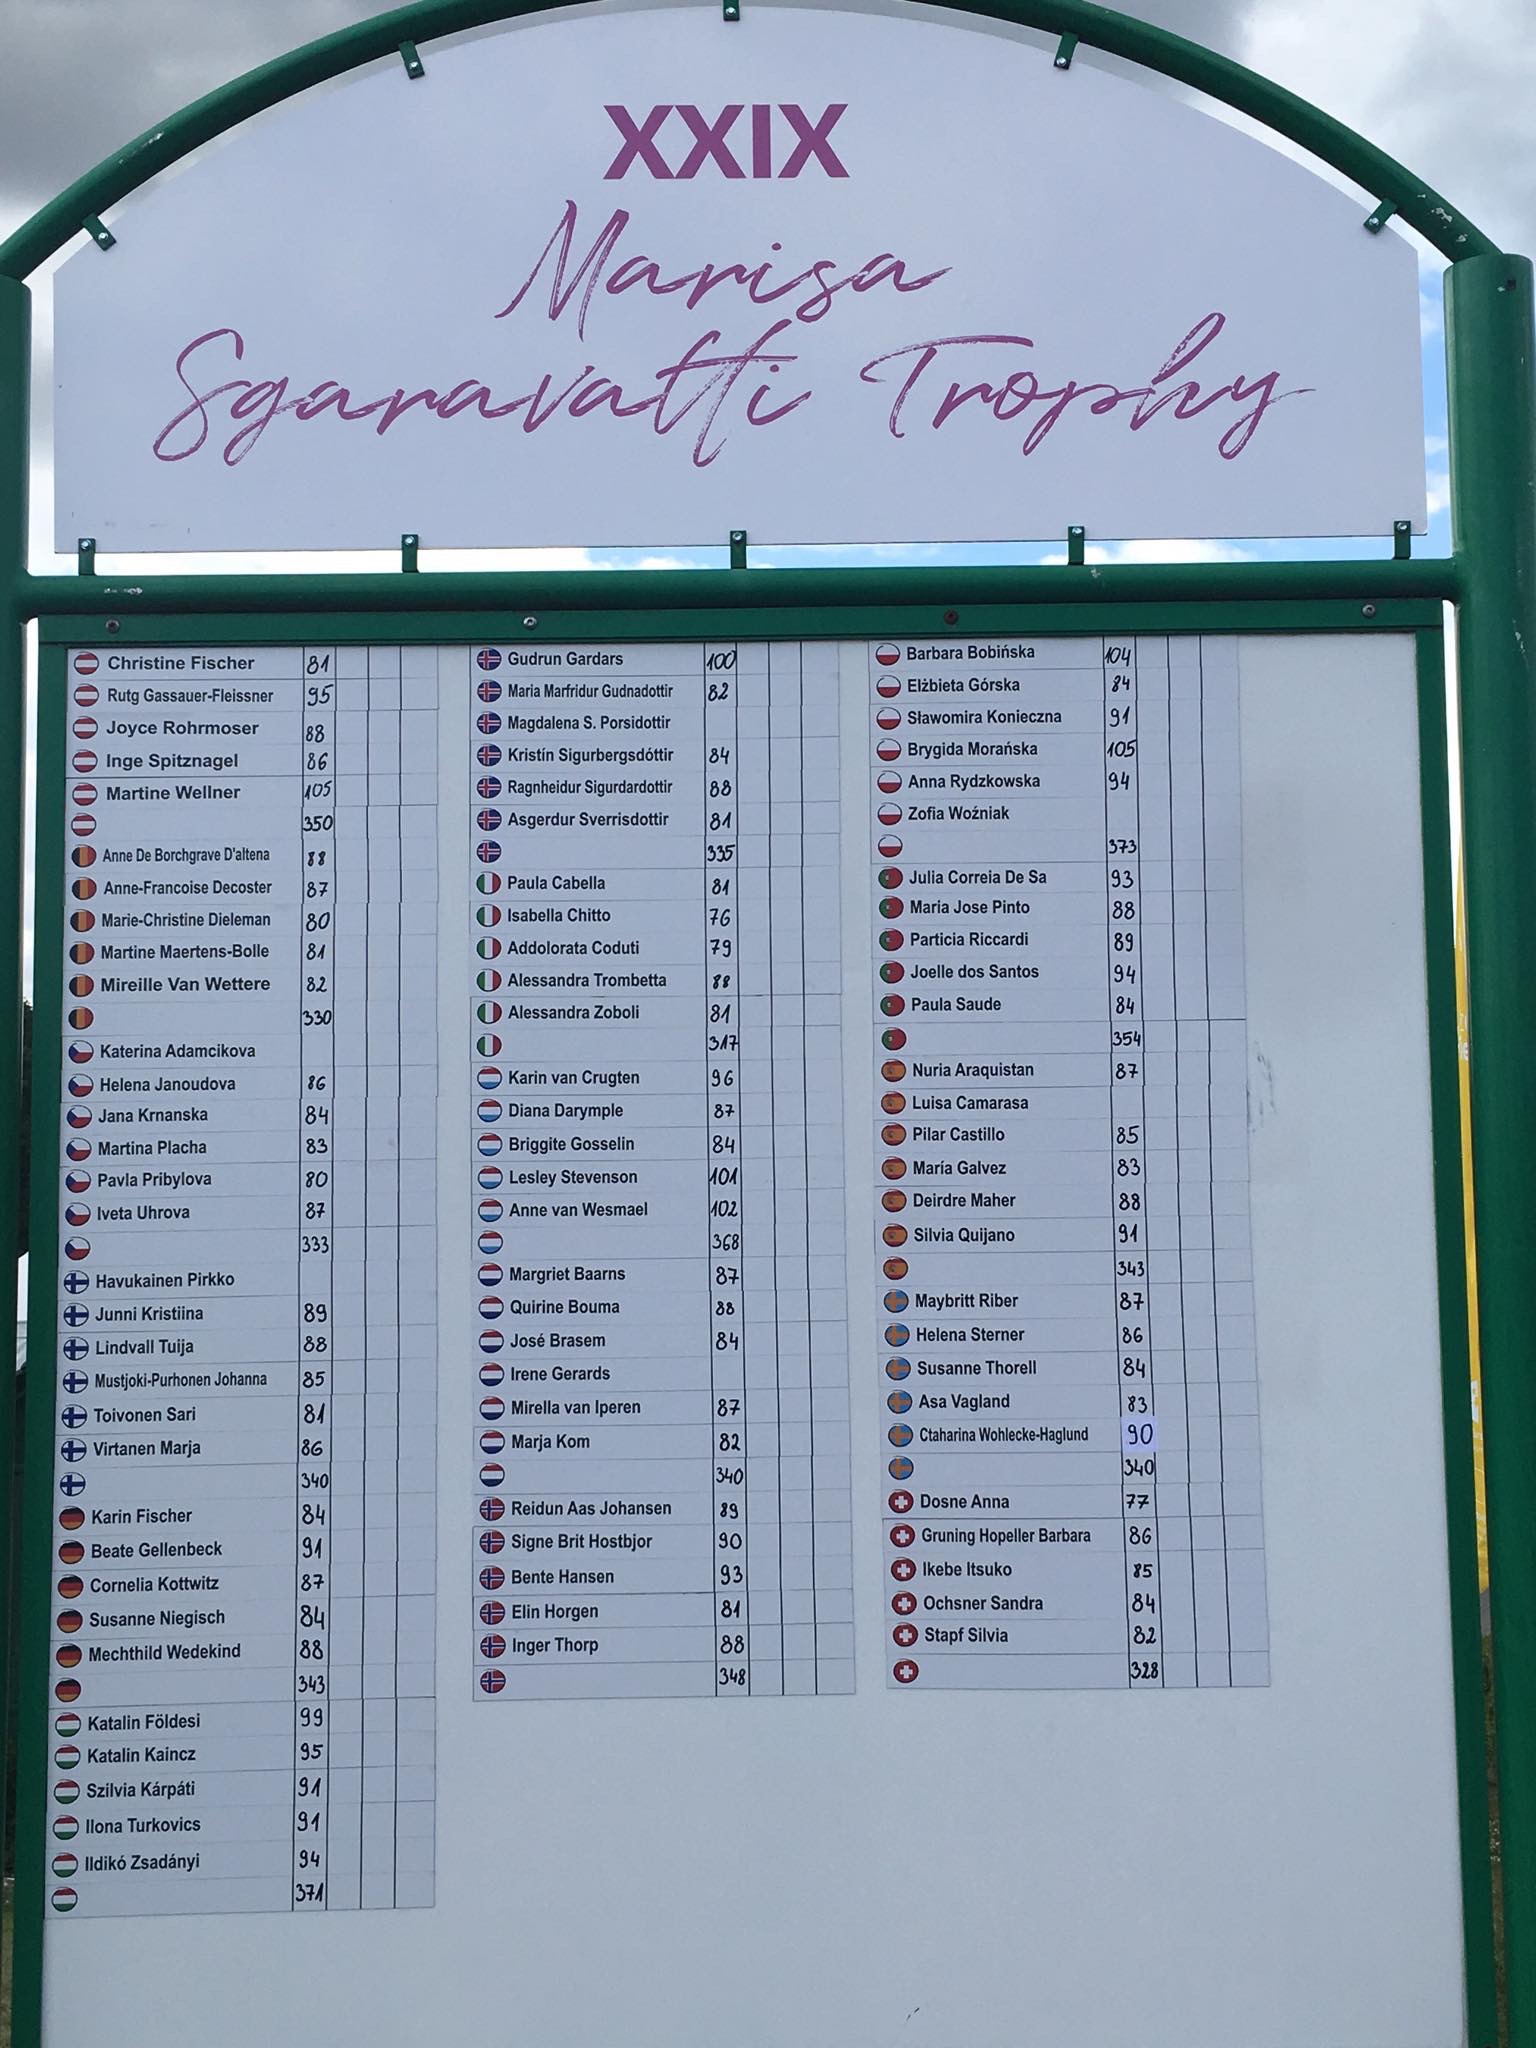 XXIX
Marisa
Sgaravatti Trophy
Christine Fischer 81
Rutg Gassauer-Fleissner 95
Joyce Rohrmoser 88
Inge Spitznagel 86
Martine Wellner 105
350
Anne De Borchgrave D'altena 88
Anne-Francoise Decoster 87
Marie-Christine Dieleman 80
Martine Maertens-Bolle 81
Mireille Van Wettere 82
330
Katerina Adamcikova
Helena Janoudova 86
Jana Krnanska 84
Martina Placha 83
Pavla Pribylova 80
Iveta Uhrova 87
333
Havukainen Pirkko
Junni Kristiina 89
Lindvall Tuija 88
Mustjoki-Purhonen Johanna 85
Toivonen Sari 81
Virtanen Marja 86
340
Karin Fischer 84
Beate Gellenbeck 91
Cornelia Kottwitz 87
Susanne Niegisch 84
Mechthild Wedekind 88
343
Katalin Földesi 99
Katalin Kaincz 95
Szilvia Kárpáti 91
Ilona Turkovics 91
Ildikó Zsadányi 94
371
Gudrun Gardars 100
Maria Marfridur Gudnadottir 82
Magdalena S. Porsidottir
Kristín Sigurbergsdóttir 84
Ragnheidur Sigurdardottir 88
Asgerdur Sverrisdottir 81
335
Paula Cabella 81
Isabella Chitto 76
Addolorata Coduti 79
Alessandra Trombetta 88
Alessandra Zoboli 81
317
Karin van Crugten 96
Diana Darymple 87
Briggite Gosselin 84
Lesley Stevenson 101
Anne van Wesmael 102
368
Margriet Baarns 87
Quirine Bouma 88
José Brasem 84
Irene Gerards
Mirella van Iperen 87
Marja Kom 82
340
Reidun Aas Johansen 89
Signe Brit Hostbjor 90
Bente Hansen 93
Elin Horgen 81
Inger Thorp 88
348
Barbara Bobińska 104
Elżbieta Górska 84
Sławomira Konieczna 91
Brygida Morańska 105
Anna Rydzkowska 94
Zofia Woźniak
373
Julia Correia De Sa 93
Maria Jose Pinto 88
Particia Riccardi 89
Joelle dos Santos 94
Paula Saude 84
354
Nuria Araquistan 87
Luisa Camarasa
Pilar Castillo 85
María Galvez 83
Deirdre Maher 88
Silvia Quijano 91
343
Maybritt Riber 87
Helena Sterner 86
Susanne Thorell 84
Asa Vagland 83
Ctaharina Wohlecke-Haglund 90
340
Dosne Anna 77
Gruning Hopeller Barbara 86
Ikebe Itsuko 85
Ochsner Sandra 84
Stapf Silvia 82
328